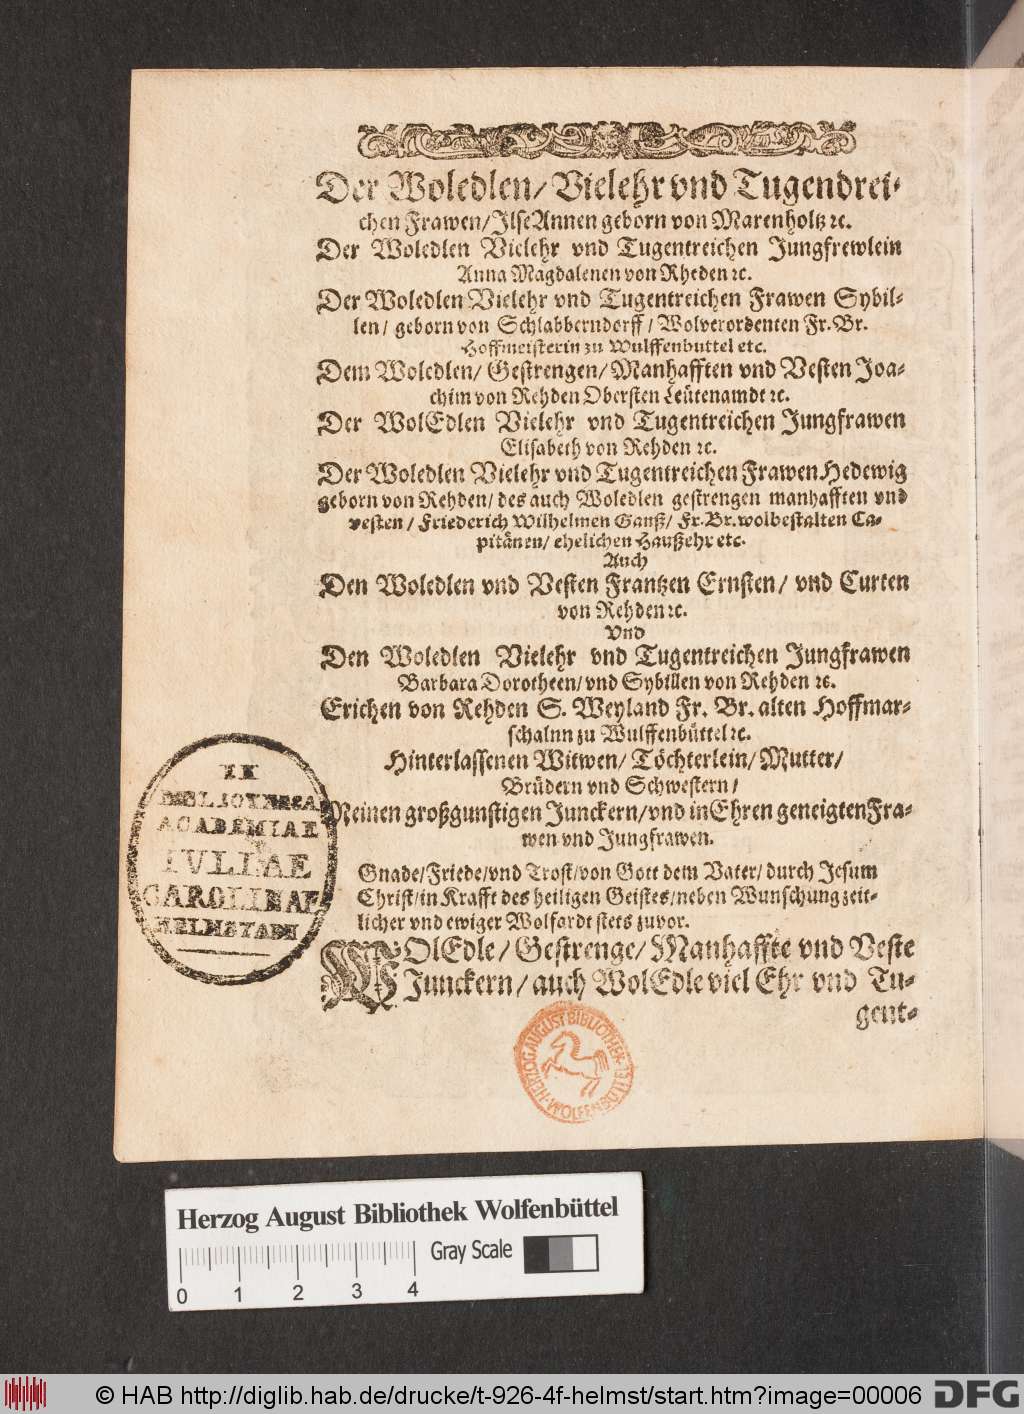 Der Woledlen/ Vielehr vnd Tugendrei-
chen Frawen/ Ilse Annen geborn von Marenholtz ꝛc.
Der Woledlen Vielehr vnd Tugentreichen Jungfrewlein
Anna Magdalenen von Rheden ꝛc.
Der Woledlen Vielehr vnd Tugentreichen Frawen Sybil-
len/ geborn von Schlabberndorff/ Wolverordenten Fr. Br.
Hoffmeisterin zu Wulffenbuttel etc.
Dem Woledlen/ Gestrengen/ Manhafften vnd Vesten Joa-
chim von Rehden Obersten Leütenamdt ꝛc.
Der WolEdlen Vielehr vnd Tugentreichen Jungfrawen
Elisabeth von Rehden ꝛc.
Der Woledlen Vielehr vnd Tugentreichen Frawen Hedewig
geborn von Rehden/ des auch Woledlen gestrengen manhafften vnd
vesten/ Friederich Wilhelmen Gauß/ Fr. Br. wolbestalten Ca-
pitänen/ ehelichen Haußehr etc.
Auch
Den Woledlen vnd Vesten Frantzen Ernsten/ vnd Curten
von Rehden ꝛc.
Vnd
Den Woledlen Vielehr vnd Tugentreichen Jungfrawen
Barbara Dorotheen/ vnd Sybillen von Rehden ꝛc.
Erichen von Rehden S. Weyland Fr. Br. alten Hoffmar-
schalnn zu Wulffenbüttel ꝛc.
Hinterlassenen Witwen/ Töchterlein/ Mutter/
Brüdern vnd Schwestern/
Meinen großgunstigen Junckern/ vnd in Ehren geneigten Fra-
wen vnd Jungfrawen.
Gnade/ Friede/ vnd Trost/ von Gott dem Vater/ durch Jesum
Christ/ in Krafft des heiligen Geistes/ neben Wunschung zeit-
licher vnd ewiger Wolfardt stets zuvor.
WOlEdle/ Gestrenge/ Manhaffte vnd Veste
Junckern/ auch WolEdle viel Ehr vnd Tu-
gent-
EX
BIBLIOTHECA
ACADEMIAE
IVLIAE
CAROLINAE
HELMSTADII
HERZOG AUGUST BIBLIOTHEK
WOLFENBÜTTEL
Herzog August Bibliothek Wolfenbüttel
Gray Scale
0 1 2 3 4
© HAB http://diglib.hab.de/drucke/t-926-4f-helmst/start.htm?image=00006
DFG